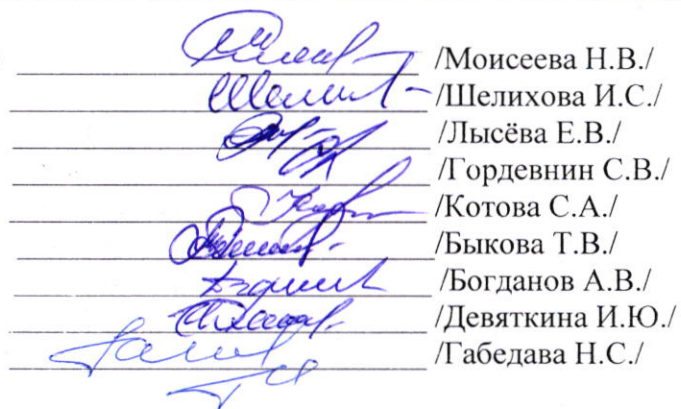 /Моисеева Н.В./
/Шелихова И.С./
/Лысёва Е.В./
/Гордевнин С.В./
/Котова С.А./
/Быкова Т.В./
/Богданов А.В./
/Девяткина И.Ю./
/Габедава Н.С./